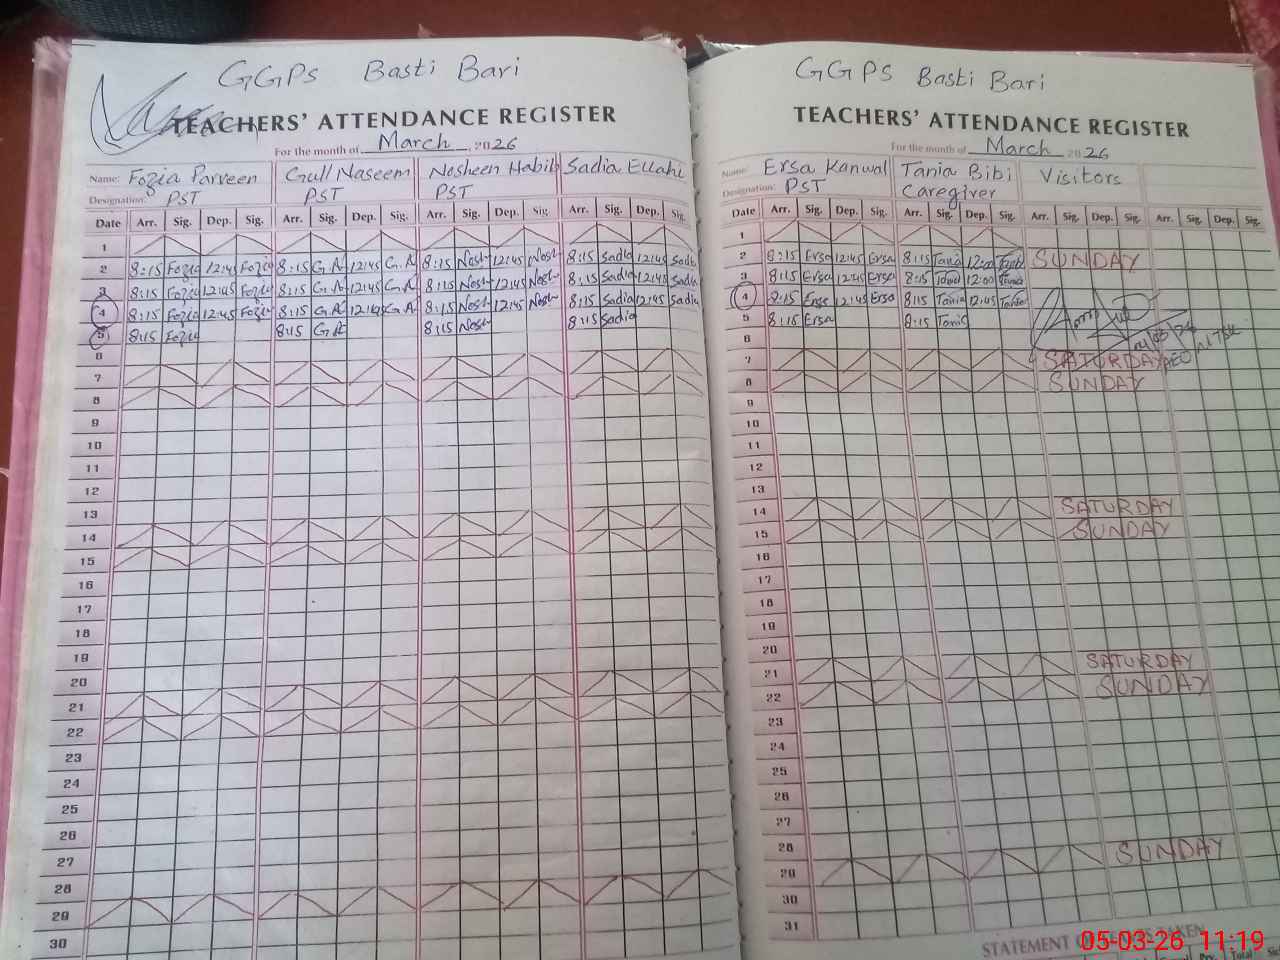 GGPS Basti Bari
TEACHERS' ATTENDANCE REGISTER
For the month of March 2026
Name: Fozia Parveen Gull Naseem Nosheen Habib Sadia Ellahi
Designation: PST PST PST
Date Arr. Sig. Dep. Sig. Arr. Sig. Dep. Sig. Arr. Sig. Dep. Sig. Arr. Sig. Dep. Sig.
1
2 8:15 Fozia 12:45 Fozia 8:15 G.A 12:45 G.A 8:15 Nosh 12:45 Nosh 8:15 Sadia 12:45 Sadia
3 8:15 Fozia 12:45 Fozia 8:15 G.A 12:45 G.A 8:15 Nosh 12:45 Nosh 8:15 Sadia 12:45 Sadia
4 8:15 Fozia 12:45 Fozia 8:15 G.A 12:45 G.A 8:15 Nosh 12:45 Nosh 8:15 Sadia 12:45 Sadia
5 8:15 Fozia 8:15 G.A 8:15 Nosh 8:15 Sadia
6
7
8
9
10
11
12
13
14
15
16
17
18
19
20
21
22
23
24
25
26
27
28
29
30
GGPS Basti Bari
TEACHERS' ATTENDANCE REGISTER
For the month of March 2026
Name: Ersa Kanwal Tania Bibi Visitors
Designation: PST Caregiver
Date Arr. Sig. Dep. Sig. Arr. Sig. Dep. Sig. Arr. Sig. Dep. Sig. Arr. Sig. Dep. Sig.
1
2 8:15 Ersa 12:45 Ersa 8:15 Tania 12:00 Tania SUNDAY
3 8:15 Ersa 12:45 Ersa 8:15 Tania 12:00 Tania
4 8:15 Ersa 12:45 Ersa 8:15 Tania 12:45 Tania
5 8:15 Ersa 8:15 Tania
6
7 SATURDAY AEO
8 SUNDAY
9
10
11
12
13
14 SATURDAY
15 SUNDAY
16
17
18
19
20
21 SATURDAY
22 SUNDAY
23
24
25
26
27
28 SUNDAY
29
30
31
STATEMENT OF LEAVES TAKEN
05-03-26 11:19